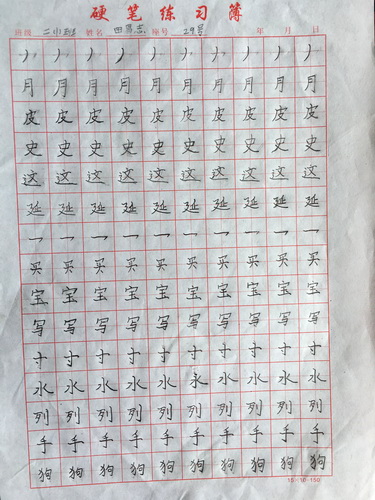 硬笔练习簿
班级 姓名 志 座号 29号 年 月 日
月 月 月 月 月 月 月 月 月 月
皮 皮 皮 皮 皮 皮 皮 皮 皮 皮
史 史 史 史 史 史 史 史 史 史
这 这 这 这 这 这 这 这 这 这
延 延 延 延 延 延 延 延 延 延
乛 乛 乛 乛 乛 乛 乛 乛 乛 乛
买 买 买 买 买 买 买 买 买 买
宝 宝 宝 宝 宝 宝 宝 宝 宝 宝
写 写 写 写 写 写 写 写 写 写
寸 寸 寸 寸 寸 寸 寸 寸 寸 寸
水 水 水 水 水 水 水 水 水 水
列 列 列 列 列 列 列 列 列 列
手 手 手 手 手 手 手 手 手 手
狗 狗 狗 狗 狗 狗 狗 狗 狗 狗
15×10=150